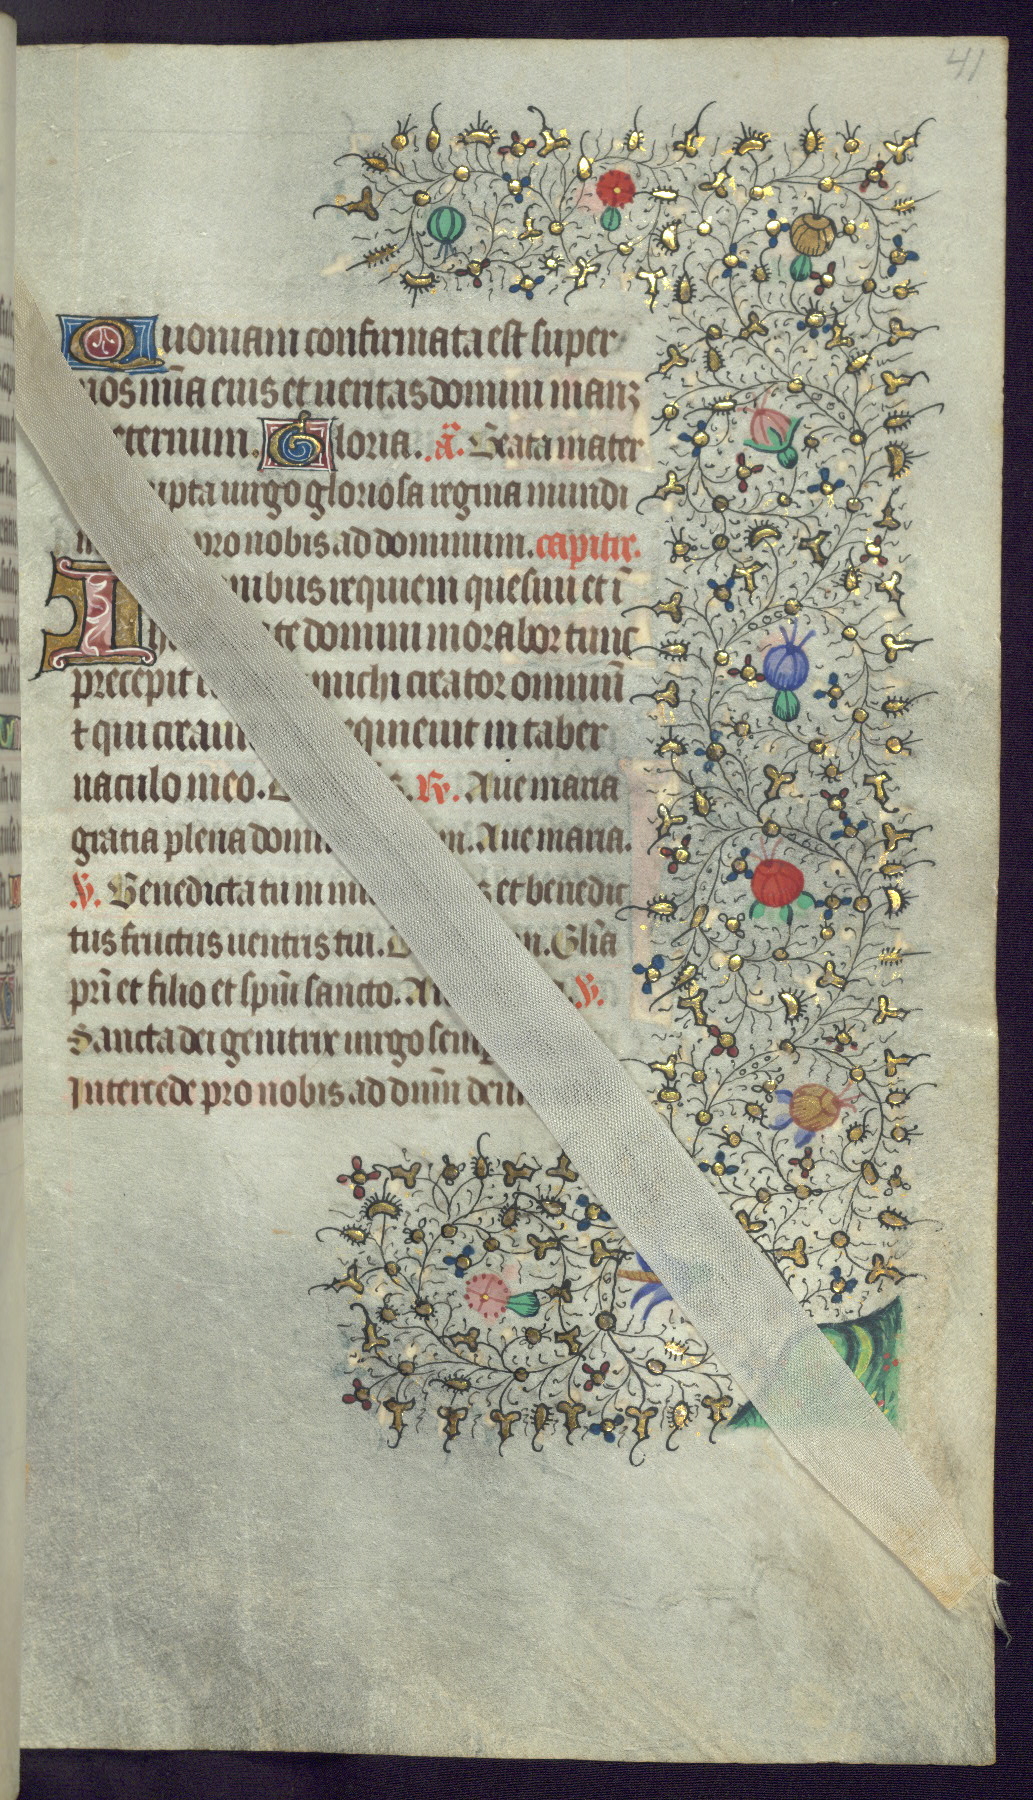 41
Quoniam confirmata est super
nos mīa eius et ueritas domini manꝫ
eternum. Gloria. ā. Beata mater
upta uirgo gloriosa regina mundi
pro nobis ad dominum. capitłe.
nibus requiem quesiui et ī
te domini morabor tunc
precepit michi creator omniū
⁊ qui creauit requieuit in taber
naculo meo. ℟. Aue maria
gratia plena domi m. Aue maria.
℣. Benedicta tu in mu s et benedic
tus fructus uentris tui. D n. Glīa
prī et filio et spūi sancto. Au ℣.
Sancta dei genitrix uirgo semp
Intercede pro nobis ad dnm̄ deu